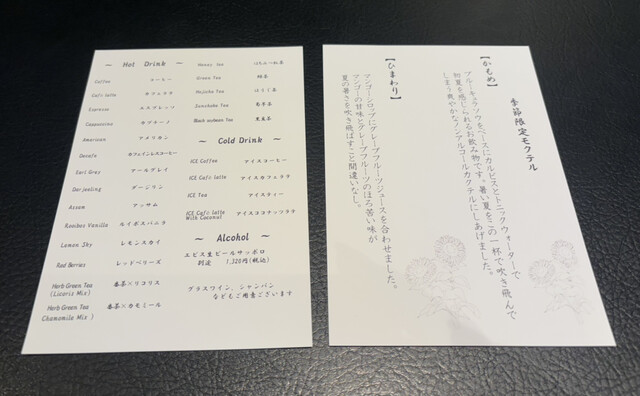 ～ Hot Drink ～
Coffee コーヒー
Cafe latte カフェラテ
Espresso エスプレッソ
Cappuccino カプチーノ
American アメリカン
Decafe カフェインレスコーヒー
Earl Grey アールグレイ
Darjeeling ダージリン
Assam アッサム
Rooibos Vanilla ルイボスバニラ
Lemon Sky レモンスカイ
Red Berries レッドベリーズ
Herb Green Tea 番茶×リコリス
(Licoris Mix)
Herb Green Tea 番茶×カモミール
Chamomile Mix )
Honey tea はちみつ紅茶
Green Tea 緑茶
Hojicha Tea ほうじ茶
Genmaicha Tea 玄米茶
Black soybeans Tea 黒豆茶
～ Cold Drink ～
ICE Coffee アイスコーヒー
ICE Cafe latte アイスカフェラテ
ICE Tea アイスティー
ICE Cafe latte アイスココナッツラテ
With Coconut
～ Alcohol ～
エビス生ビールサッポロ
別途 1,320円(税込)
グラスワイン、シャンパン
などもご用意ございます
季節限定モクテル
【かもめ】
ブルーキュラソウをベースにカルピスとトニックウォーターで
初夏を感じられるお飲み物です。暑い夏をこの一杯で吹き飛んで
しまう爽やかなノンアルコールカクテルにしあげました。
【ひまわり】
マンゴーシロップにグレープフルーツジュースを合わせました。
マンゴーの甘味とグレープフルーツのほろ苦い味が
夏の暑さを吹き飛ばすこと間違いなし。